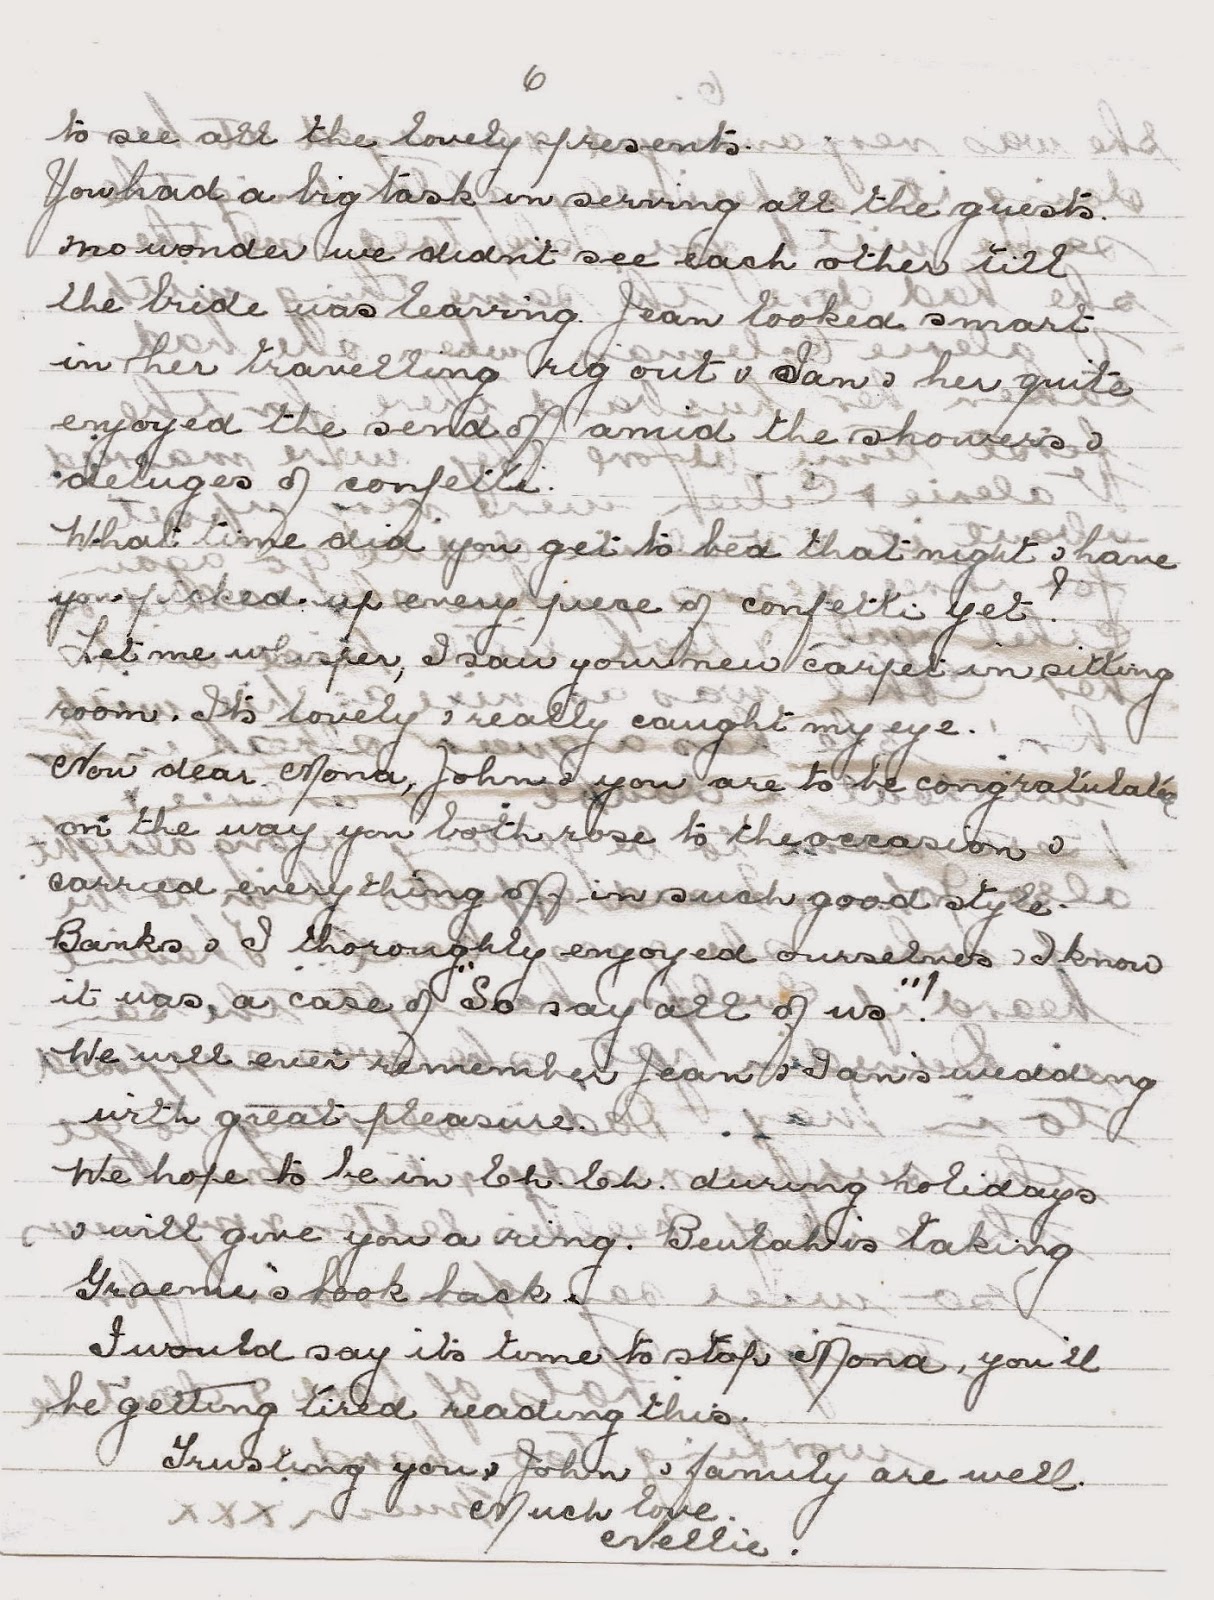 6
to see all the lovely presents.
You had a big task in serving all the guests.
no wonder we didn't see each other till
the bride was leaving. Jean looked smart
in her travelling rig out & Ian & her quite
enjoyed the send off amid the showers &
deluges of confetti.
What time did you get to bed that night & have
you picked up every piece of confetti yet?
Let me whisper, I saw your new carpet in sitting
room. Its lovely & really caught my eye.
Now dear Mona, John & you are to be congratulated
on the way you both rose to the occasion &
carried everything off in such good style.
Banks & I thoroughly enjoyed ourselves & I know
it was a case of "So say all of us"!
We will ever remember Jean & Ian's wedding
with great pleasure.
We hope to be in Ch. Ch. during holidays
& will give you a ring. Beulah is taking
Graeme's book back.
I would say its time to stop Mona, you'll
be getting tired reading this.
Trusting you, John & family are well.
Much love.
Nellie.